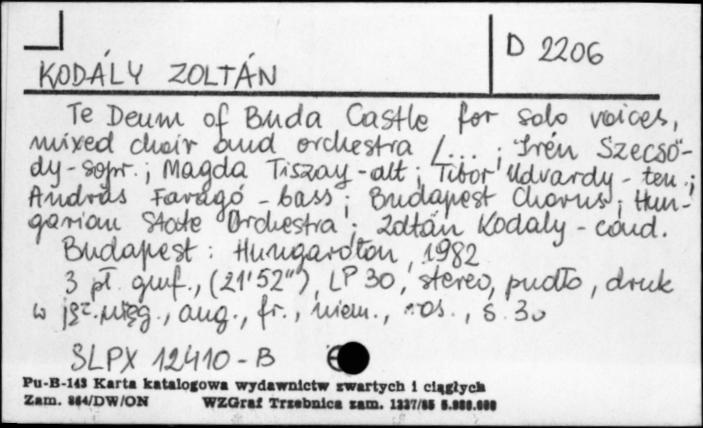 D 2206
KODÁLY ZOLTÁN
Te Deum of Buda Castle for solo voices,
mixed choir and orchestra /... ; Irén Szecső-
dy-sopr.; Magda Tiszay-alt; Tibor Udvardy - ten.;
András Faragó - bass; Budapest Chorus; Hun-
garian State Orchestra; Zoltán Kodaly - cond.
Budapest: Hungaroton, 1982
3 pł. gmf., (21'52"), LP 30, stereo, pudło, druk
w jęz. węg., ang., fr., niem., ros., s. 30
SLPX 12410-B
Pu-B-143 Karta katalogowa wydawnictw zwartych i ciągłych
Zam. 864/DW/ON WZGraf Trzebnica zam. 1327/85 5.000.000